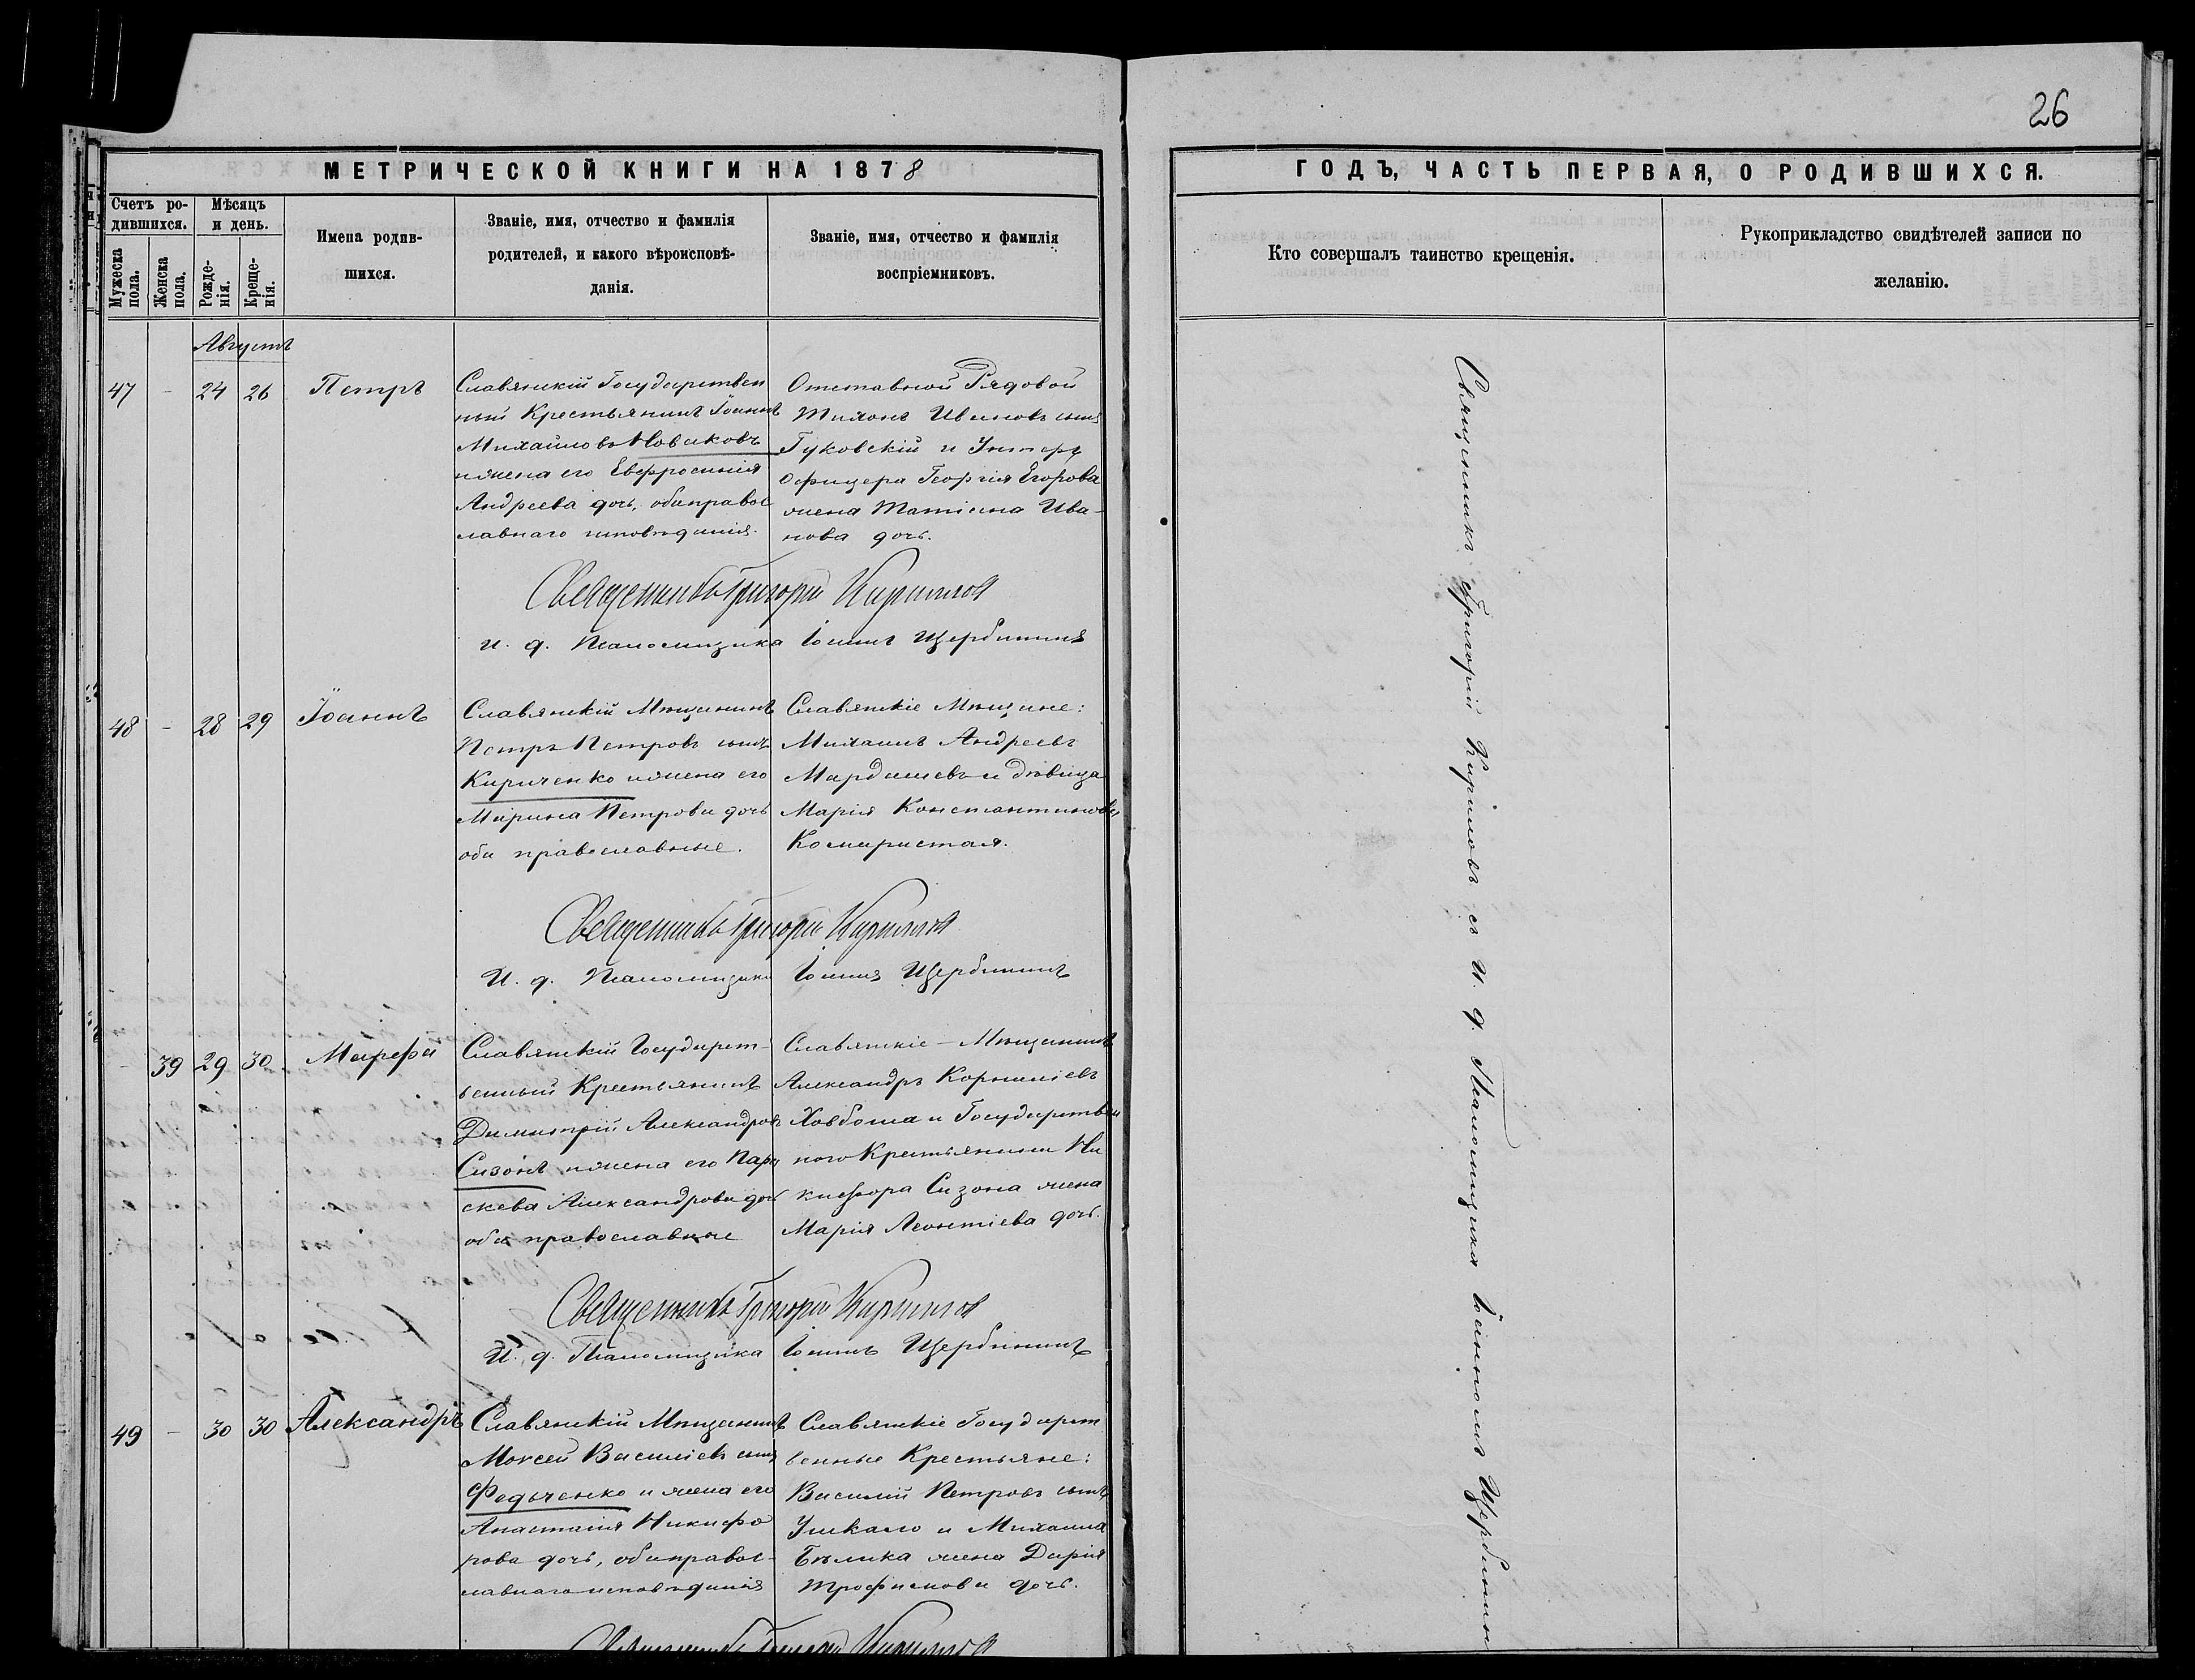 26
МЕТРИЧЕСКОЙ КНИГИ НА 1878
ГОДЪ, ЧАСТЬ ПЕРВАЯ, О РОДИВШИХСЯ.
Счетъ ро-
дившихся.
Мѣсяцъ
и день.
Мужеска
пола.
Женска
пола.
Рожде-
нія.
Креще-
нія.
Имена родив-
шихся.
Званіе, имя, отчество и фамилія
родителей, и какого вѣроисповѣ-
данія.
Званіе, имя, отчество и фамилія
воспріемниковъ.
Кто совершалъ таинство крещенія.
Рукоприкладство свидѣтелей записи по
желанію.
Августъ
47 - 24 26 Петръ
Славянскій Государствен
ный Крестьянинъ Іоаннъ
Михайловъ Новаковъ
и жена его Евфросинія
Андреева дочь, оба правос
лавнаго исповѣданія.
Отставной Рядовой
Тихонъ Ивановъ сынъ
Гуковскій и Унтеръ
Офицера Георгія Егорова
жена Татіана Ива-
нова дочь.
Священникъ Григорій Кириллов
и. д. Псаломщика Іоаннъ Щербининъ
48 - 28 29 Іоаннъ
Славянскій Мѣщанинъ
Петръ Петровъ сынъ
Кириченко и жена его
Марина Петрова дочь
оба православные.
Славянскіе Мѣщане:
Михаилъ Андреевъ
Мардашевъ и дѣвица
Марія Константинова
Комаристая.
Священникъ Григорій Кириллов
И. д. Псаломщика Іоаннъ Щербининъ
- 39 29 30 Марфа
Славянскій Государст-
венный Крестьянинъ
Димитрій Александровъ
Сизонъ и жена его Пара
скева Александрова доч
оба православные
Славянскіе - Мѣщанинъ
Александръ Корниліевъ
Ховбоша и Государствен
ного Крестьянина Ни
кифора Сизона жена
Марія Леонтіева дочь.
Священникъ Григорій Кириллов
И. д. Псаломщика Іоаннъ Щербининъ
49 - 30 30 Александръ
Славянскій Мѣщанинъ
Моѵсей Василіевъ сынъ
Федьченко и жена его
Анастасія Никифо
рова дочь, оба правос-
лавнаго исповѣданія
Славянскіе Государст
венные Крестьяне:
Василій Петровъ сынъ
Ушкало и Михаила
Бѣлика жена Дарія
Трофимова дочь.
Священникъ Григорій Кириллов
Священникъ Григорій Кириловъ съ И. д. Псаломщика Іоанномъ Щербинин